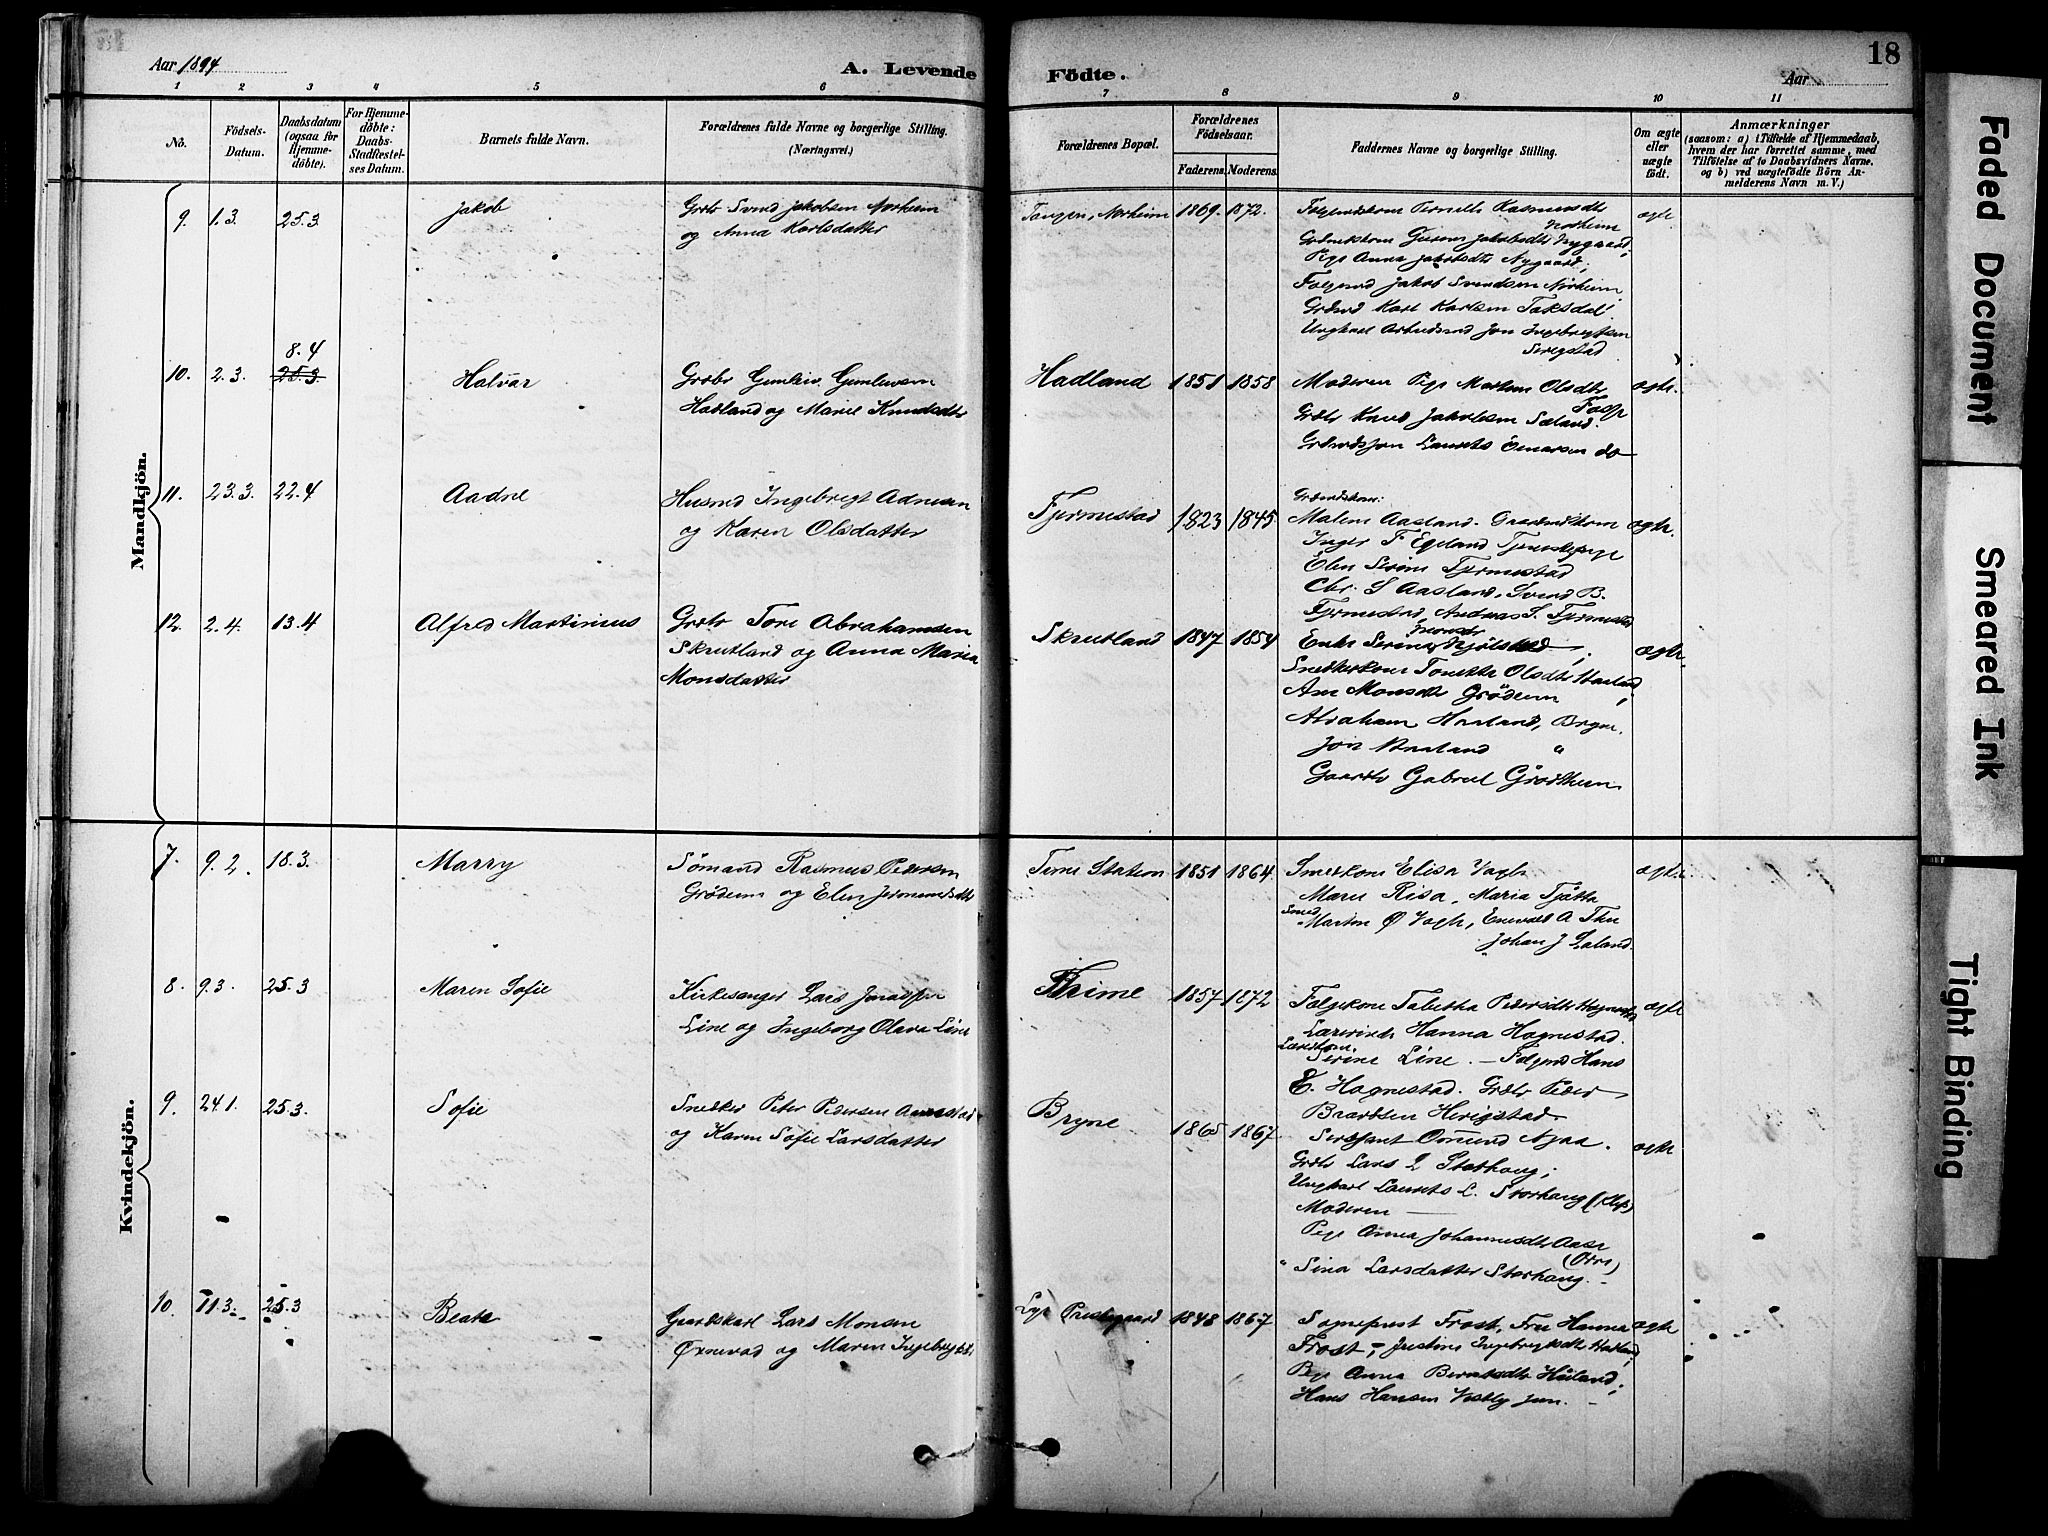 Aar 1894
A. Levende
Födte.
Aar
18
1 2 3 4 5 6 7 8 9 10 11
No.
Födsels-
Datum.
Daabsdatum
(ogsaa for
Hjemme-
döbte).
For Hjemme-
döbte:
Daabs-
Stadfæstel-
ses Datum.
Barnets fulde Navn.
Forældrenes fulde Navne og borgerlige Stilling.
(Næringsvei.)
Forældrenes Bopæl.
Forældrenes
Födselsaar.
Faderens. Moderens.
Faddernes Navne og borgerlige Stilling.
Om ægte
eller
uægte
födt.
Anmærkninger
(saasom: a) i Tilfælde af Hjemmedaab,
hvem der har forrettet samme, med
Tilföielse af to Daabsvidners Navne,
og b) ved uægtefödte Börn An-
melderens Navn m. V.)
Mandkjön.
9. 1.3 25.3 Jakob
Grdbr Svend Jakobsen Norheim
og Anna Karlsdatter
Tangen, Norheim 1869. 1872.
Folgemdskone Pernille Rasmusdtr
Norheim
Grdmdskone Jakobsdtr Nygaard,
Pige Anna Jakobsdtr Nygaard,
Folgemd Jakob Svendsen Norheim
Grdmd Karl Karlsen Taksdal
Ungkarl Arbeidsmd Jon Ingebregtsen
Serigstad
ægte.
8.4
10. 2.3. 25.3 Halvar
Grdbr Gunleiv Gunleivsen
Hadland og Marie Knudsdtr
Hadland 1851 1858
Moderen Pige Marten Olsdtr
Grdbr Knud Jakobsen Sæland.
Grdmdssön Laurets Omarsen do
ægte.
11. 23.3. 22.4 Aadne
Husmd Ingebregt Adnesen
og Karen Olsdatter
Fjermestad 1823 1845
Grdmdskone:
Malene Aasland. Grdmdskone
Inger F Egeland Tjenestepige
Elen Serine Fjermestad
Chr. S Aasland, Svend B.
Fjermestad, Andreas S. Fjermestad
ægte.
12. 2.4. 13.4 Alfred Martinius
Grdbr Tore Abrahamsen
Skrutland og Anna Maria
Monsdatter
Skrutland 1847 1854
Monsdr
Enke Serina Njölstad,
Snedkerkone Tonette Olsdtr Haaland
Ane Monsdtr Grödem,
Abraham Haaland, Bryne.
Jon Haaland "
Gaardbr Gabriel Grödheim
ægte.
Kvindekjön.
7. 9.2. 18.3. Marry
Sömand Rasmus Pedersen
Grödem og Elen
Time Station 1851 1864
Smedkone Elisa Vagle
Marie Risa, Maria Tjötta
Smed Marton Ø Vagle, Enevald A Thu
Johan J Laland.
ægte
8. 9.3. 25.3 Maren Sofie
Kirkesanger Lars Jonassen
Line og Ingeborg Olava Line
Thime 1857 1872
Folgekone Tabitha Pedersdtr Hognestad
Lærerinde Hanna Hognestad.
Lærerkone
Serine Line. – Folgemd Hans
E. Hognestad. Grdbr Peder
Bradtlen Herigstad
ægte
9. 24.1. 25.3. Sofie
Snedker Peter Pedersen
og Karen Sofie Larsdatter
Bryne 1865 1867
Serdsjant Osmund Njaa.
Grdbr Lars L Storhaug;
Ungkarl Laurets L. Storhaug (Klep)
Moderen
Pige Anna Johannesdtr Aase
(Orre)
" Sina Larsdatter Storhaug. –
ægte
10. 11.3. 25.3 Beate
Gaardskarl Lars Monsen
Øxnevad og Maren Ingebregtsdtr
Lye Prestegaard 1848 1867
Sogneprest Frost, Fru Hanna
Frost, – Justine Ingebregtsdtr Hatland,
Pige Anna Berntsdtr Höiland;
Hans Hansen Vesby jun. –
ægte
Faded Document
Smeared Ink
Tight Binding